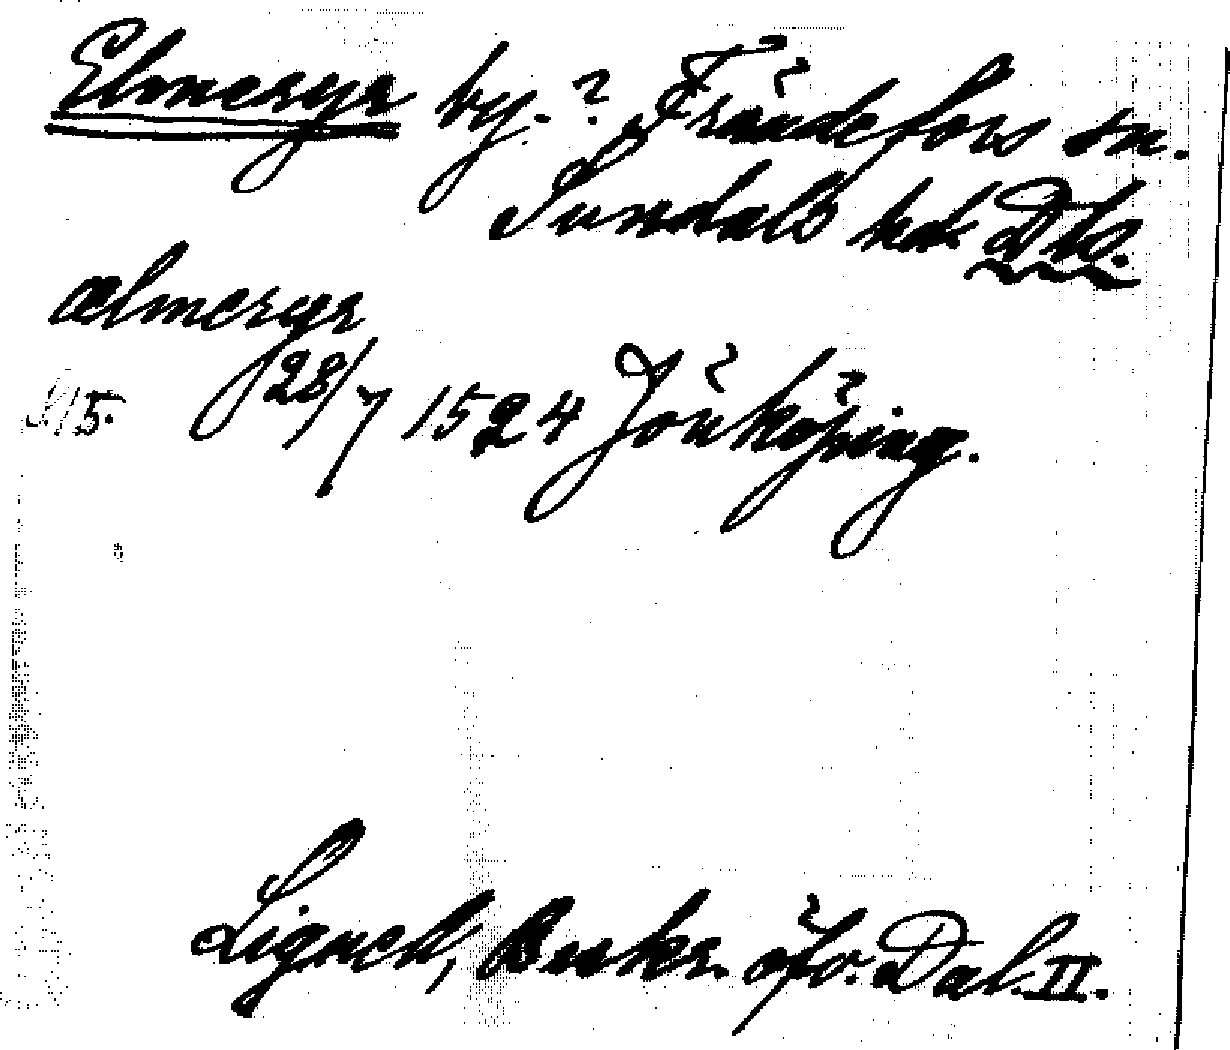 Elmeryr by.? Frändefors sn.
Sundals hd. Dls.
ælmeryr
28/7 1524 Jönköping.
S. 15.
Lignell, Beskr. öfv. Dal. II.